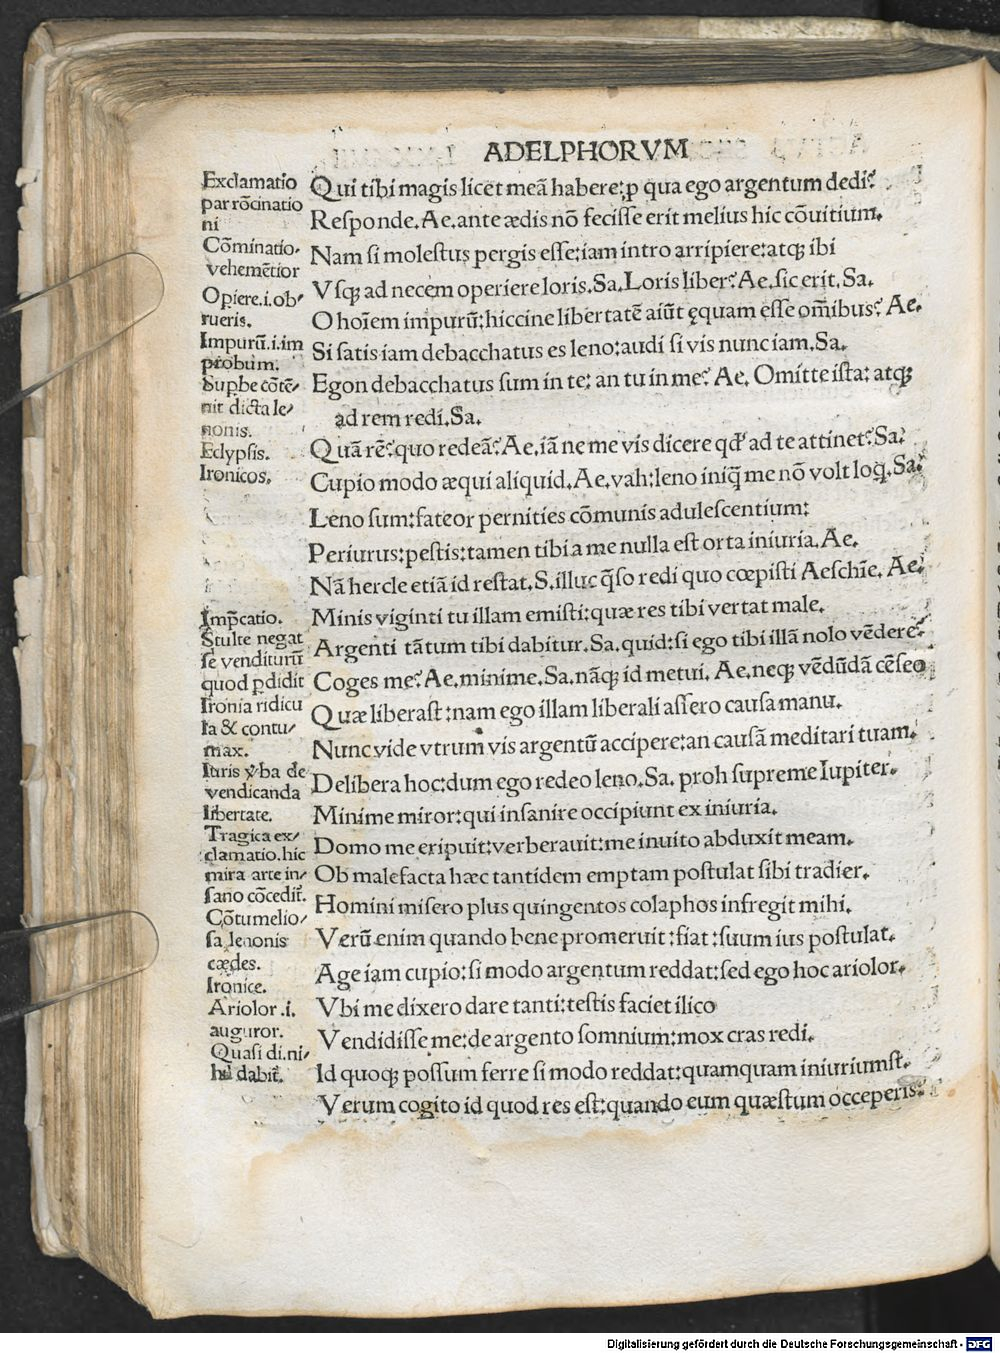 ADELPHORVM
Exclamatio
par rõcinatio
ni
Cõminatio
vehemẽtior
Opiere.i.ob⸗
rueris.
Impurũ.i.im
probum.
Supbe cõtẽ⸗
nit dicta le⸗
nonis.
Eclypsis.
Ironicos.
Imp̃catio.
Stulte negat
se venditurũ
quod pdidit
Ironia ridicu
la & contu⸗
max.
Iuris v̾ba de
vendicanda
libertate.
Tragica ex⸗
clamatio.hic
mira arte in⸗
sano cõcedit̃.
Cõtumelio⸗
sa lenonis
cædes.
Ironice.
Ariolor.i.
auguror.
Quasi di.ni⸗
hil dabit̃.
Qui tibi magis licet meã habere:ꝓ qua ego argentum dedi?
Responde.Ae.ante ædis nõ fecisse erit melius hic cõuitium.
Nam si molestus pergis esse:iam intro arripiere:atqꝫ ibi
Vsqꝫ ad necem operiere loris.Sa.Loris liber?Ae.sic erit.Sa.
O hoĩem impurũ:hiccine libertatẽ aiũt ęquam esse om̃ibus? Ae.
Si satis iam debacchatus es leno:audi si vis nunc iam.Sa.
Egon debacchatus sum in te: an tu in me? Ae. Omitte ista: atqꝫ
ad rem redi.Sa.
Quã rẽ?quo redeã?Ae.iã ne me vis dicere qđ ad te attinet?Sa.
Cupio modo æqui aliquid.Ae.vah:leno iniq̃ me nõ volt loq̃.Sa.
Leno sum:fateor pernities cõmunis adulescentium:
Periurus:pestis:tamen tibi a me nulla est orta iniuria.Ae.
Nã hercle etiã id restat.S.illuc q̃so redi quo cœpisti Aeschĩe. Ae.
Minis viginti tu illam emisti:quæ res tibi vertat male.
Argenti tãtum tibi dabitur.Sa.quid:si ego tibi illã nolo vẽdere?
Coges me?Ae.minime.Sa.nãqꝫ id metui. Ae.neqꝫ vẽdũdã cẽseo
Quæ liberast:nam ego illam liberali assero causa manu.
Nunc vide vtrum vis argentũ accipere:an causã meditari tuam.
Delibera hoc:dum ego redeo leno.Sa. proh supreme Iupiter.
Minime miror:qui insanire occipiunt ex iniuria.
Domo me eripuit:verberauit:me inuito abduxit meam.
Ob malefacta hæc tantidem emptam postulat sibi tradier.
Homini misero plus quingentos colaphos infregit mihi.
Verũ enim quando bene promeruit:fiat:suum ius postulat.
Age iam cupio:si modo argentum reddat:sed ego hoc ariolor.
Vbi me dixero dare tanti:testis faciet ilico
Vendidisse me:de argento somnium:mox cras redi.
Id quoqꝫ possum ferre si modo reddat:quamquam iniuriumst.
Verum cogito id quod res est:quando eum quæstum occeperis:
Digitalisierung gefördert durch die Deutsche Forschungsgemeinschaft - DFG